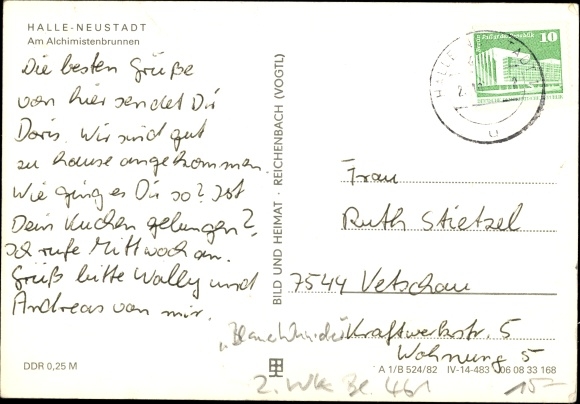 HALLE-NEUSTADT
Am Alchimistenbrunnen
Die besten Grüße
von hier sendet Dir
Doris. Wir sind gut
zu hause angekommen.
Wie ging es Dir so? Ist
Dein Kuchen gelungen?
Ich rufe Mittwoch an.
Grüß bitte Wally und
Andreas von mir.
DDR 0,25 M
BILD UND HEIMAT · REICHENBACH (VOGTL)
10
Frau
Ruth Stietzel
7544 Vetschau
Kraftwerkstr. 5
Wohnung 5
A 1/B 524/82 IV-14-483 06 08 33 168
2. Wk Bl. 461
15-